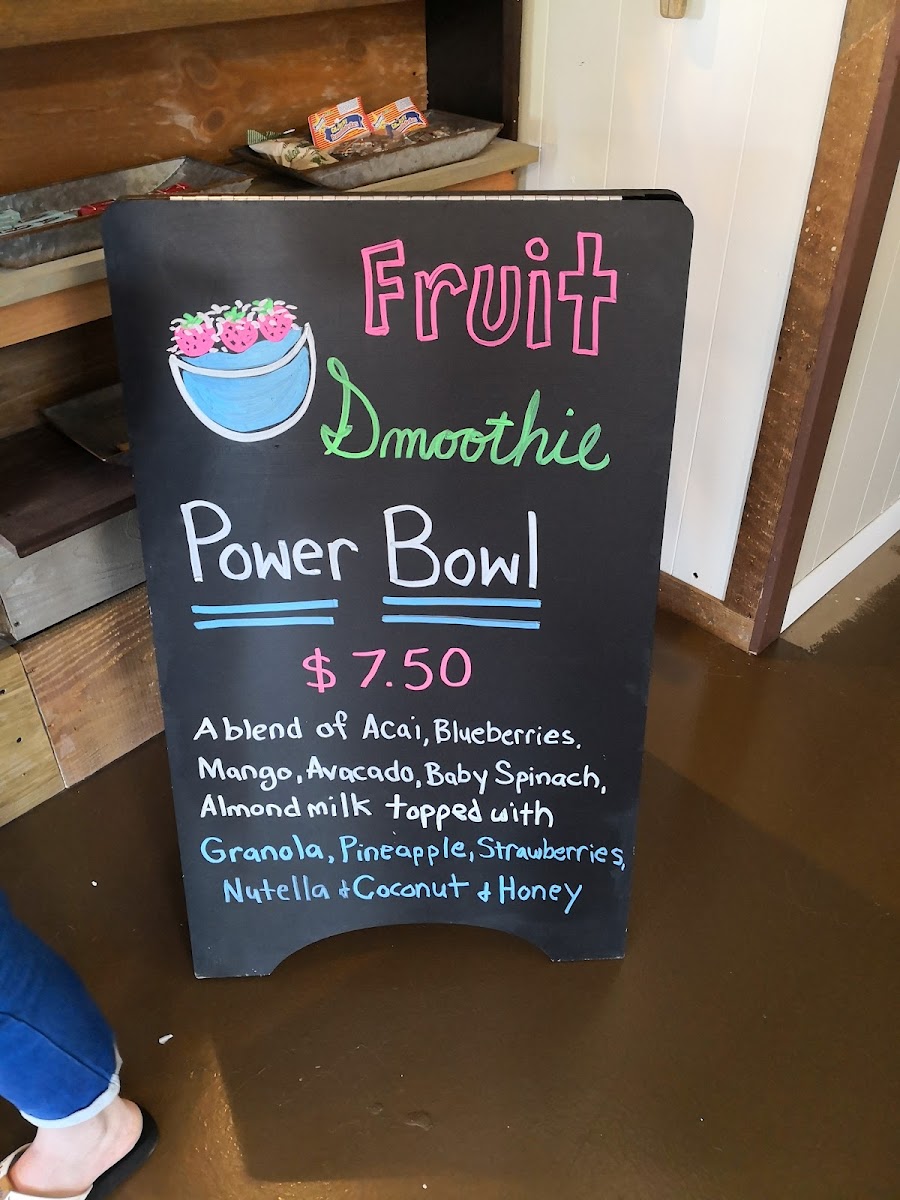 Fruit
Smoothie
Power Bowl
$7.50
A blend of Acai, Blueberries.
Mango, Avacado, Baby Spinach,
Almond milk topped with
Granola, Pineapple, Strawberries,
Nutella & Coconut & Honey